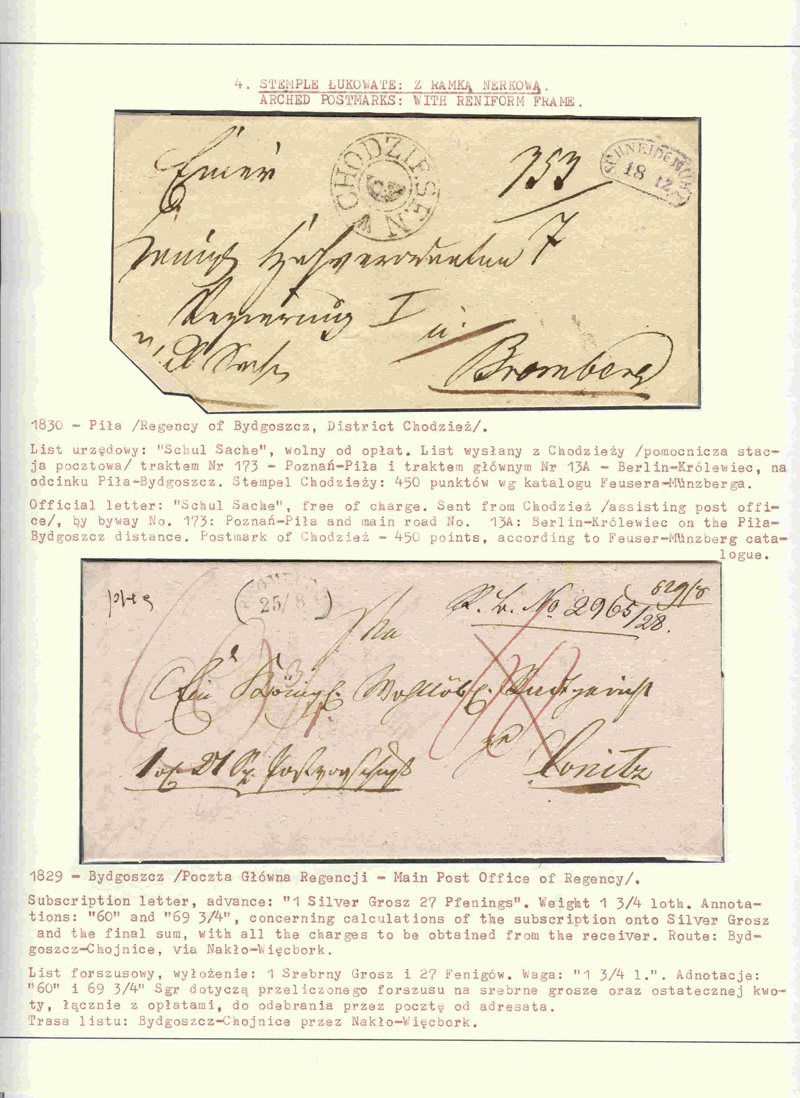 4. STEMPLE ŁUKOWATE: Z RAMKĄ NERKOWĄ.
ARCHED POSTMARKS: WITH RENIFORM FRAME.
CHODZIESEN
353
SCHNEIDEMÜHL
18 12.
7
Regierung I
Bromberg
1830 - Piła /Regency of Bydgoszcz, District Chodzież/.
List urzędowy: "Schul Sache", wolny od opłat. List wysłany z Chodzieży /pomocnicza stac-
ja pocztowa/ traktem Nr 173 - Poznań-Piła i traktem głównym Nr 13A - Berlin-Królewiec, na
odcinku Piła-Bydgoszcz. Stempel Chodzieży: 450 punktów wg katalogu Feusera-Münzberga.
Official letter: "Schul Sache", free of charge. Sent from Chodzież /assisting post offi-
ce/, by byway No. 173: Poznań-Piła and main road No. 13A: Berlin-Królewiec on the Piła-
Bydgoszcz distance. Postmark of Chodzież - 450 points, according to Feuser-Münzberg cata-
logue.
25/8
No 2965/28.
Ein Königl. Wohllöbl.
zu Conitz
1829 - Bydgoszcz /Poczta Główna Regencji - Main Post Office of Regency/.
Subscription letter, advance: "1 Silver Grosz 27 Pfenings". Weight 1 3/4 loth. Annota-
tions: "60" and "69 3/4", concerning calculations of the subscription onto Silver Grosz
and the final sum, with all the charges to be obtained from the receiver. Route: Byd-
goszcz-Chojnice, via Nakło-Więcbork.
List forszusowy, wyłożenie: 1 Srebrny Grosz i 27 Fenigów. Waga: "1 3/4 l.". Adnotacje:
"60" i 69 3/4" Sgr dotyczą przeliczonego forszusu na srebrne grosze oraz ostatecznej kwo-
ty, łącznie z opłatami, do odebrania przez pocztę od adresata.
Trasa listu: Bydgoszcz-Chojnice przez Nakło-Więcbork.